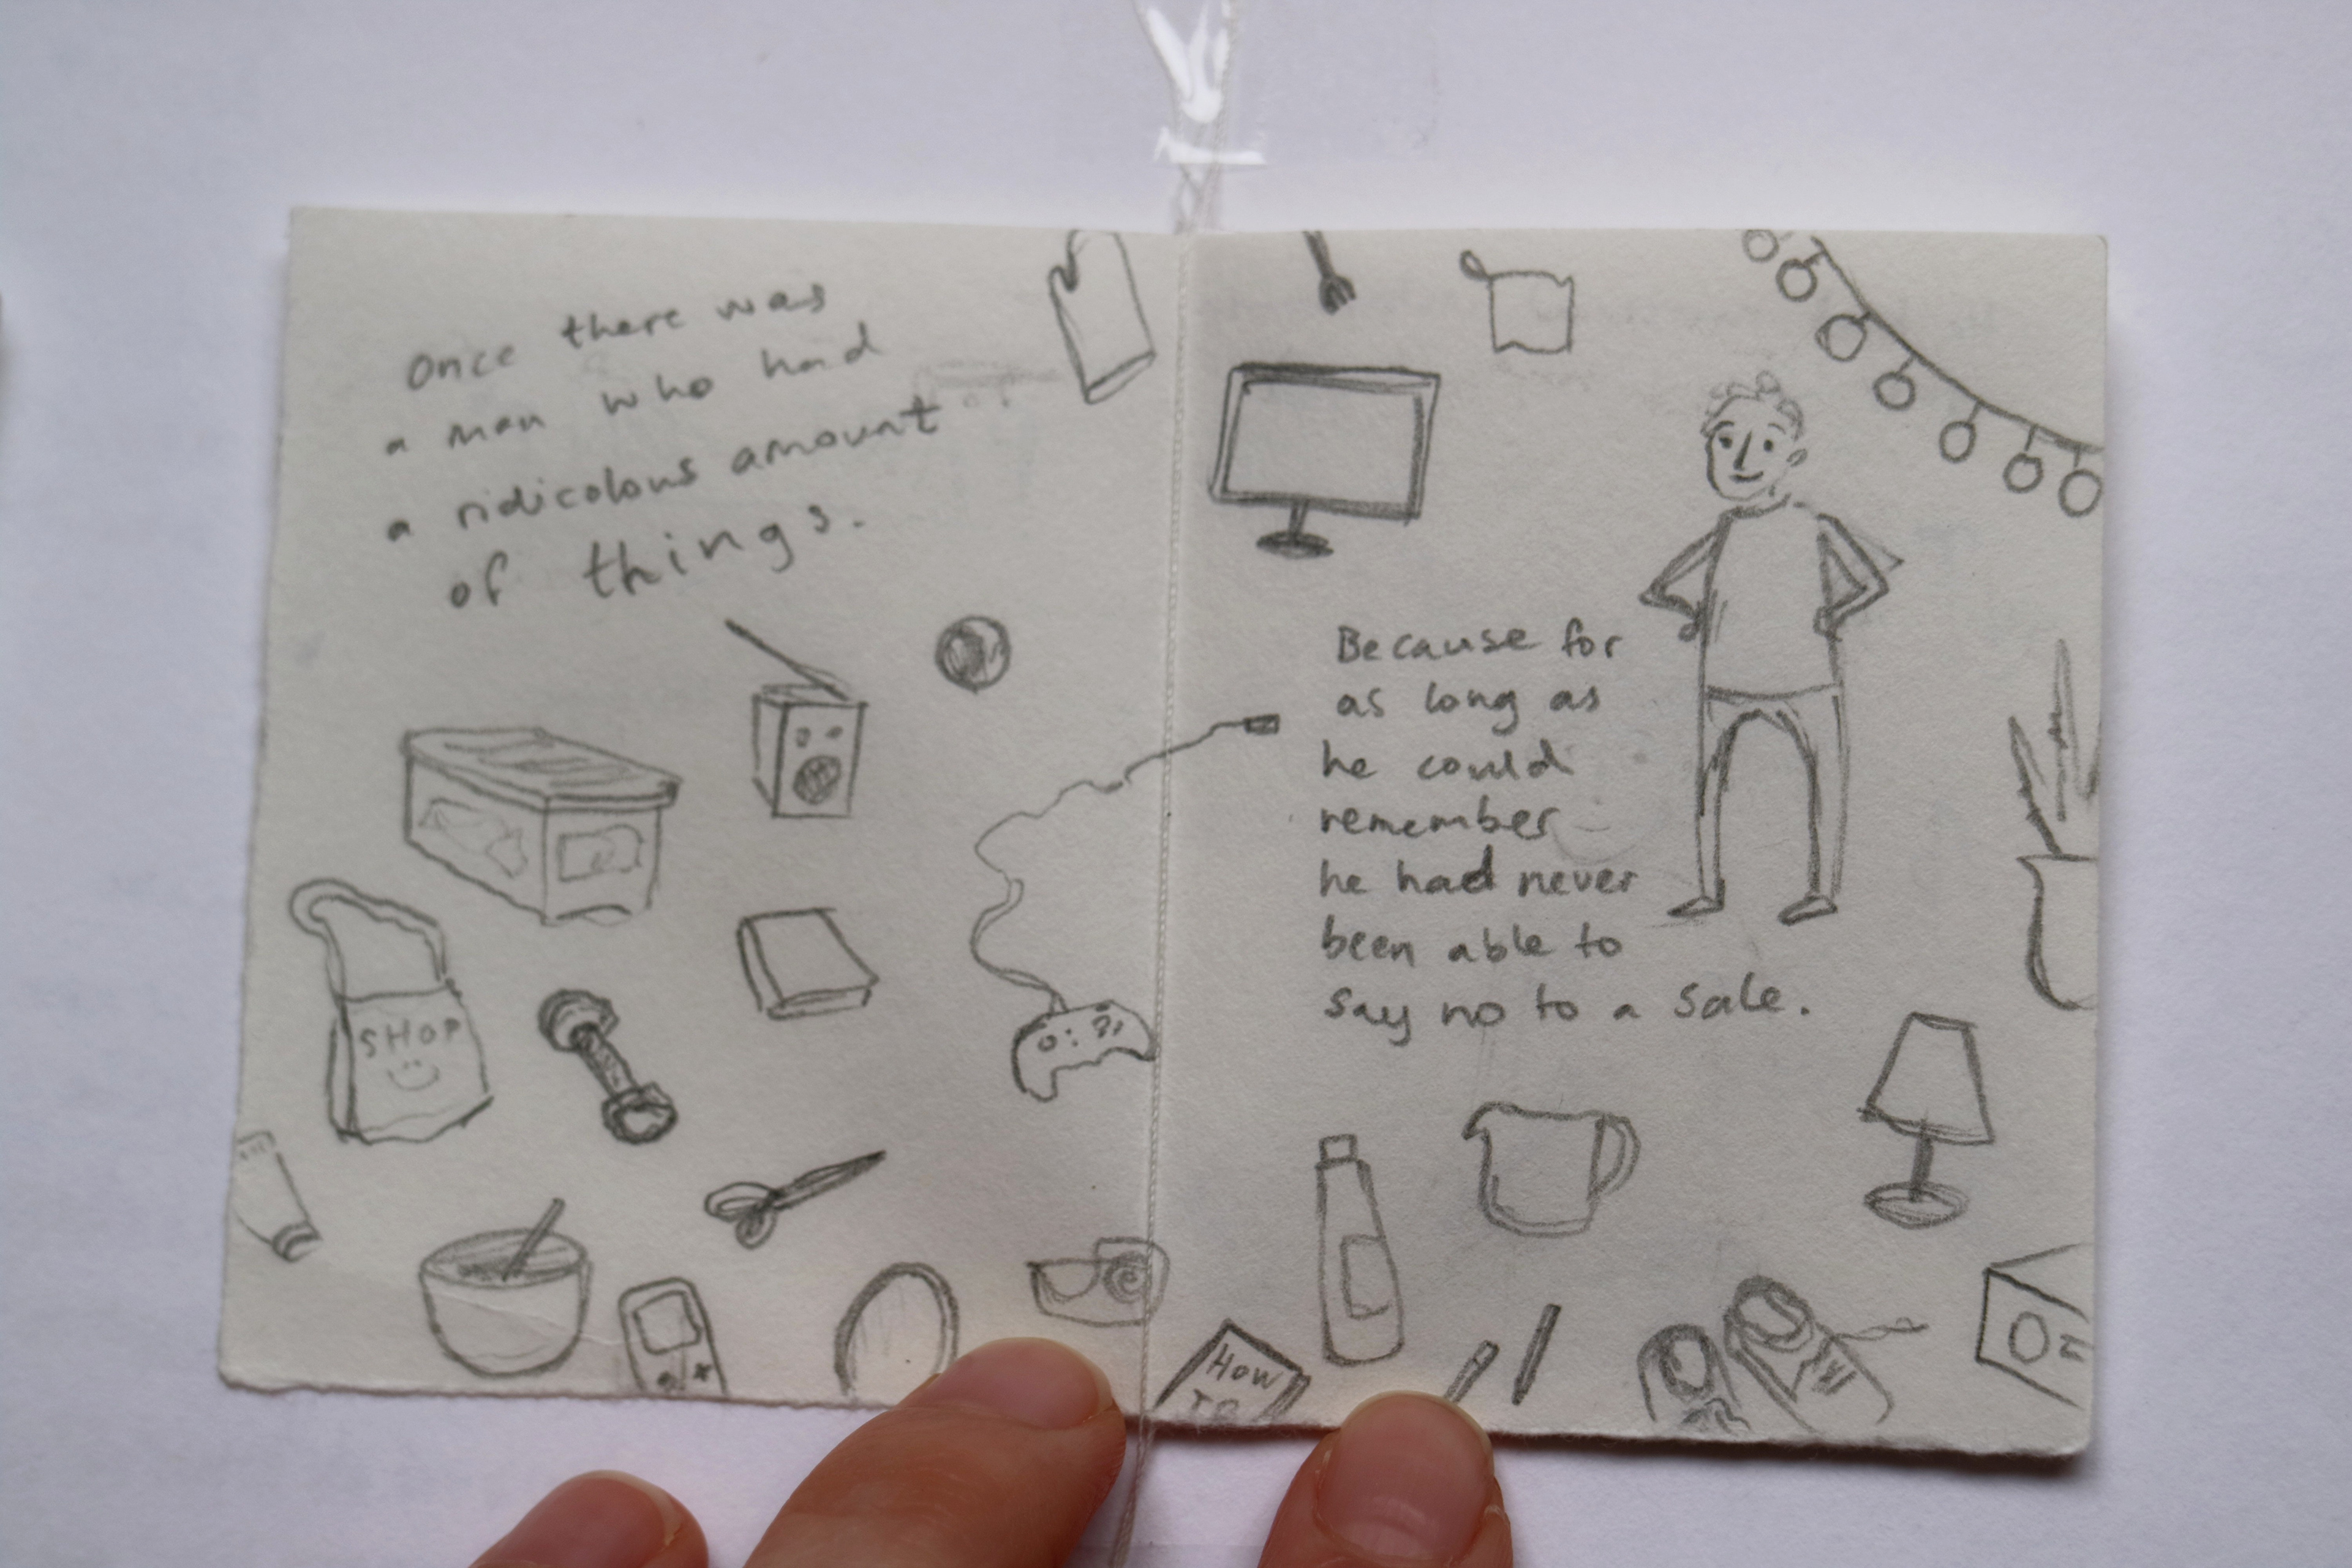 Once there was
a man who had
a ridicolous amount
of things.
SHOP
Because for
as long as
he could
remember
he had never
been able to
say no to a sale.
HOW
TO